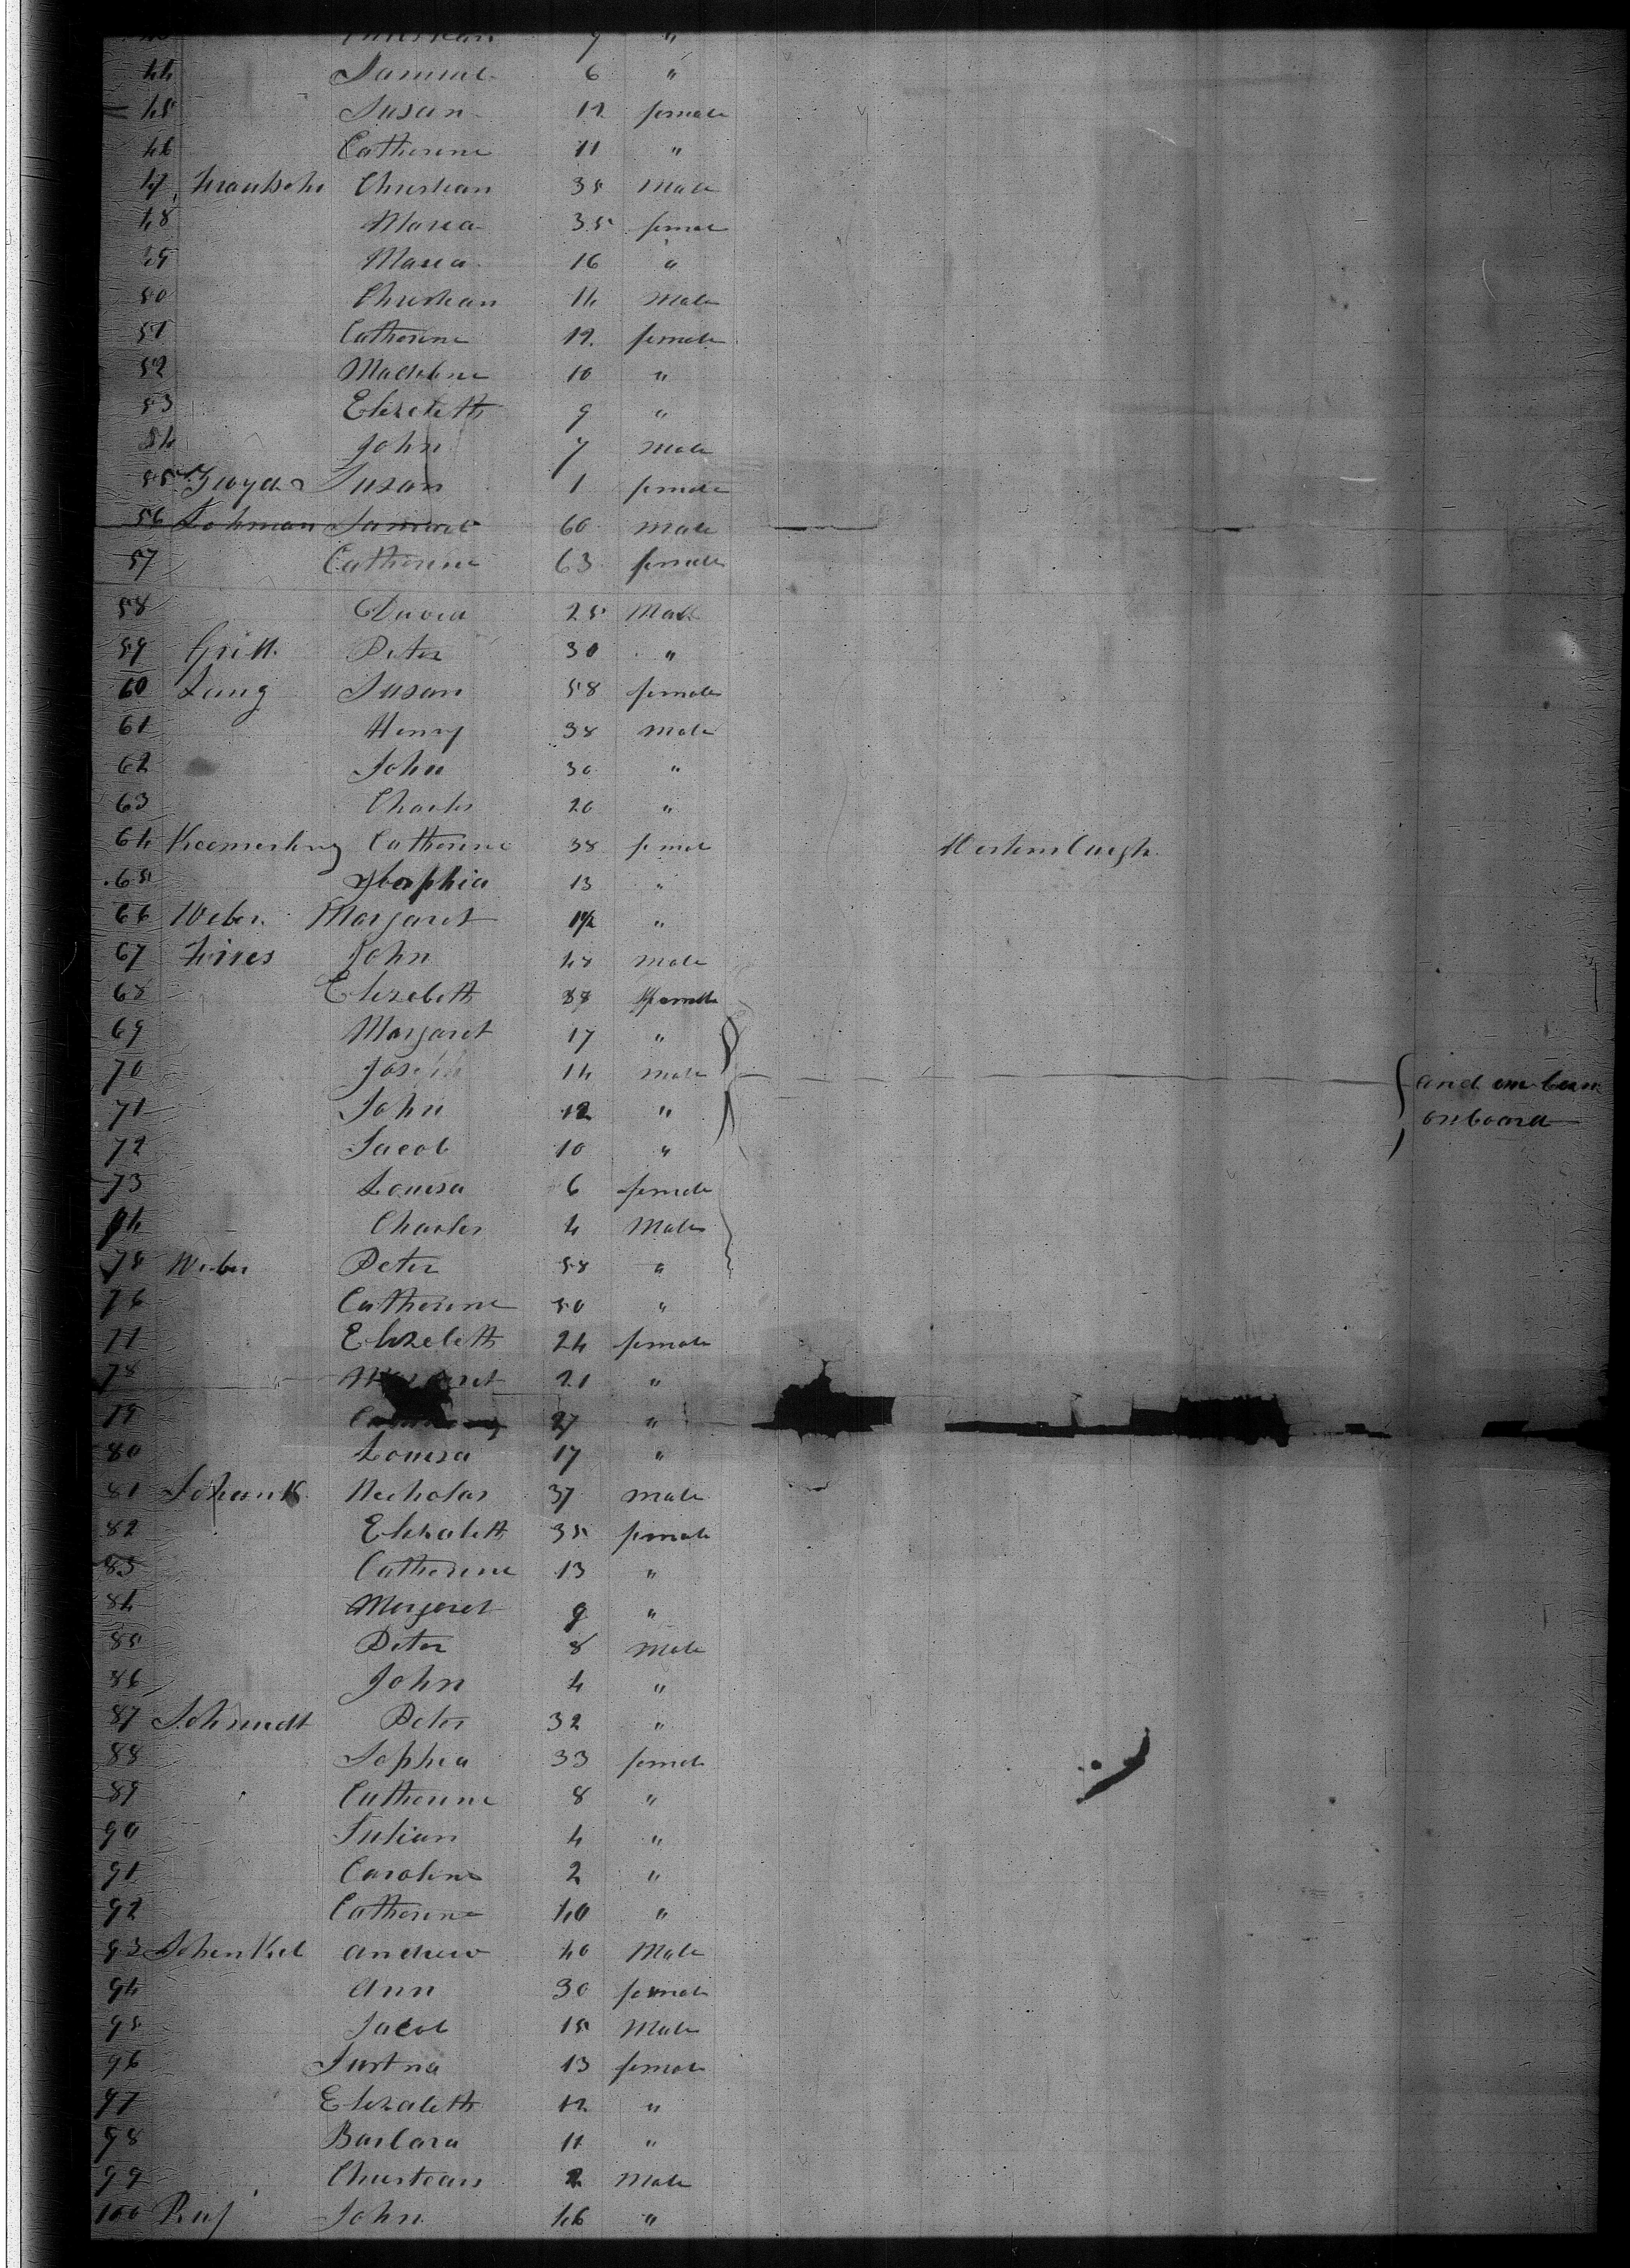 Christian 9 "
44 Samuel 6 "
45 Susan 12 female
46 Catherine 11 "
47 Christian 35 Male
48 Maria 35 female
49 Maria 16 "
50 Christian 14 Male
51 Catherine 12 female
52 Madeline 10 "
53 Elizabeth 9 "
54 John 7 Male
55 Susan 1 female
56 Lohman Samuel 60 Male
57 Catherine 63 female
58 David 25 Male
59 Gritt Peter 30 "
60 Lang Susan 58 female
61 Henry 38 Male
62 John 30 "
63 Charles 20 "
64 Catherine 38 female
65 Sophia 13 "
66 Weber Margaret 1½ "
67 John 48 Male
68 Elizabeth 38 female
69 Margaret 17 "
70 Joseph 14 Male
and one born
71 John 12 "
onboard
72 Jacob 10 "
73 Louisa 6 female
74 Charles 4 Male
75 Weber Peter 58 "
76 Catherine 50 "
77 Elizabeth 24 female
78 Margaret 21 "
79 27 "
80 Louisa 17 "
81 Schank Nicholas 37 Male
82 Elizabeth 35 female
83 Catherine 13 "
84 Margaret 9 "
85 Peter 8 Male
86 John 4 "
87 Schmidt Peter 32 "
88 Sophia 33 female
89 Catherine 8 "
90 Julian 4 "
91 Caroline 2 "
92 Catherine 40 "
93 Schenkel Andrew 40 Male
94 Ann 30 female
95 Jacob 15 Male
96 Justna 13 female
97 Elizabeth 12 "
98 Barbara 11 "
99 Christian 2 Male
100 Ruf John 46 "